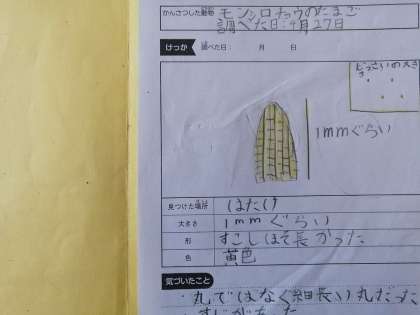 かんさつした動物 モンシロチョウのたまご
調べた日:4月27日
けっか 調べた日: 月 日
じっさいの大きさ
1mmぐらい
見つけた場所 はたけ
大きさ 1mmぐらい
形 すこしほそ長かった
色 黄色
気づいたこと
・丸ではなく細長い丸だった
・すじがあった